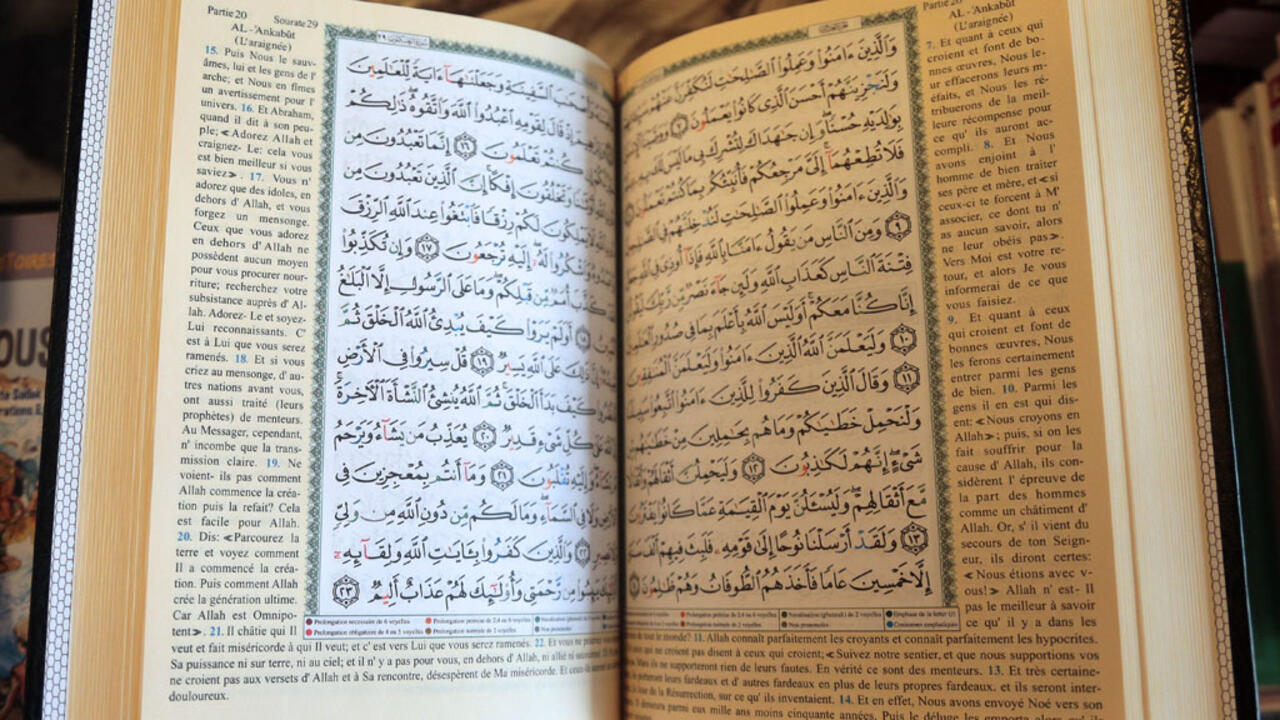 Partie 20
AL -'Ankabût
(L'araignée)
7. Et quant à ceux qui
croient et font de bo-
nnes œuvres, Nous le-
ur effacerons leurs m-
éfaits, et Nous les ré-
tribuerons de la meil-
leure récompense pour
ce qu' ils auront ac-
compli. 8. Et Nous
avons enjoint à l'
homme de bien traiter
ses père et mère, et «si
ceux-ci te forcent à M'
associer, ce dont tu n'
as aucun savoir, alors
ne leur obéis pas».
Vers Moi est votre re-
tour, et alors Je vous
informerai de ce que
vous faisiez.
9. Et quant à ceux
qui croient et font de
bonnes œuvres, Nous
les ferons certainement
entrer parmi les gens
de bien. 10. Parmi les
gens il en est qui dis-
ent: «Nous croyons en
Allah»; puis, si on les
fait souffrir pour la
cause d' Allah, ils con-
sidèrent l' épreuve de
la part des hommes
comme un châtiment d'
Allah. Or, s' il vient du
secours de ton Seign-
eur, ils diront certes:
«Nous étions avec v-
ous!» Allah n' est- Il
pas le meilleur à savoir
ce qu' il y a dans les
وَالَّذِينَ ءَامَنُوا وَعَمِلُوا الصَّٰلِحَٰتِ لَنُكَفِّرَنَّ عَنْهُمْ
وَلَنَجْزِيَنَّهُمْ أَحْسَنَ الَّذِي كَانُوا يَعْمَلُونَ ٧ وَوَصَّيْنَا
بِوَٰلِدَيْهِ حُسْنًا وَإِن جَٰهَدَاكَ لِتُشْرِكَ بِي مَا لَيْسَ لَكَ
فَلَا تُطِعْهُمَا إِلَيَّ مَرْجِعُكُمْ فَأُنَبِّئُكُم بِمَا كُنتُمْ تَعْمَلُونَ
وَالَّذِينَ ءَامَنُوا وَعَمِلُوا الصَّٰلِحَٰتِ لَنُدْخِلَنَّهُمْ فِي الصَّٰلِحِينَ
٩ وَمِنَ النَّاسِ مَن يَقُولُ ءَامَنَّا بِاللَّهِ فَإِذَا أُوذِيَ فِي اللَّهِ
فِتْنَةَ النَّاسِ كَعَذَابِ اللَّهِ وَلَئِن جَاءَ نَصْرٌ مِّن رَّبِّكَ
إِنَّا كُنَّا مَعَكُمْ أَوَلَيْسَ اللَّهُ بِأَعْلَمَ بِمَا فِي صُدُورِ
١٠ وَلَيَعْلَمَنَّ اللَّهُ الَّذِينَ ءَامَنُوا وَلَيَعْلَمَنَّ الْمُنَٰفِقِينَ
١١ وَقَالَ الَّذِينَ كَفَرُوا لِلَّذِينَ ءَامَنُوا اتَّبِعُوا
وَلْنَحْمِلْ خَطَٰيَٰكُمْ وَمَا هُم بِحَٰمِلِينَ مِنْ خَطَٰيَٰهُم
شَيْءٍ إِنَّهُمْ لَكَٰذِبُونَ ١٢ وَلَيَحْمِلُنَّ أَثْقَالَهُمْ
مَّعَ أَثْقَالِهِمْ وَلَيُسْـَٔلُنَّ يَوْمَ الْقِيَٰمَةِ عَمَّا كَانُوا
١٣ وَلَقَدْ أَرْسَلْنَا نُوحًا إِلَىٰ قَوْمِهِ فَلَبِثَ فِيهِمْ أَلْفَ
إِلَّا خَمْسِينَ عَامًا فَأَخَذَهُمُ الطُّوفَانُ وَهُمْ ظَٰلِمُونَ
de tout le monde? 11. Allah connaît parfaitement les croyants et connaît parfaitement les hypocrites.
qui ne croient pas disent à ceux qui croient; «Suivez notre sentier, et que nous supportions vos
Mais ils ne supporteront rien de leurs fautes. En vérité ce sont des menteurs. 13. Et très certaine-
porteront leurs fardeaux et d' autres fardeaux en plus de leurs propres fardeaux. et ils seront inter-
le Jour de la Résurrection, sur ce qu' ils inventaient. 14. Et en effet, Nous avons envoyé Noé vers son
demeura parmi eux mille ans moins cinquante années. Puis le déluge les emporta
Partie 20
Sourate 29
AL -'Ankabût
(L'araignée)
15. Puis Nous le sauv-
âmes, lui et les gens de l'
arche; et Nous en fîmes
un avertissement pour l'
univers. 16. Et Abraham,
quand il dit à son peu-
ple; «Adorez Allah et
craignez- Le: cela vous
est bien meilleur si vous
saviez» . 17. Vous n'
adorez que des idoles, en
dehors d' Allah, et vous
forgez un mensonge.
Ceux que vous adorez
en dehors d' Allah ne
possèdent aucun moyen
pour vous procurer nour-
riture; recherchez votre
subsistance auprès d' Al-
lah. Adorez- Le et soyez-
Lui reconnaissants. C'
est à Lui que vous serez
ramenés. 18. Et si vous
criez au mensonge, d' au-
tres nations avant vous,
ont aussi traité (leurs
prophètes) de menteurs.
Au Messager, cependant,
n' incombe que la trans-
mission claire. 19. Ne
voient- ils pas comment
Allah commence la créa-
tion puis la refait? Cela
est facile pour Allah.
20. Dis: «Parcourez la
terre et voyez comment
Il a commencé la créa-
tion. Puis comment Allah
crée la génération ultime.
Car Allah est Omnipo-
tent». 21. Il châtie qui Il
وَأَصْحَٰبَ السَّفِينَةِ وَجَعَلْنَٰهَا ءَايَةً لِّلْعَٰلَمِينَ
إِذْ قَالَ لِقَوْمِهِ اعْبُدُوا اللَّهَ وَاتَّقُوهُ ذَٰلِكُمْ
كُنتُمْ تَعْلَمُونَ ١٦ إِنَّمَا تَعْبُدُونَ مِن
وَتَخْلُقُونَ إِفْكًا إِنَّ الَّذِينَ تَعْبُدُونَ مِن
لَا يَمْلِكُونَ لَكُمْ رِزْقًا فَابْتَغُوا عِندَ اللَّهِ الرِّزْقَ
وَاشْكُرُوا لَهُ إِلَيْهِ تُرْجَعُونَ ١٧ وَإِن تُكَذِّبُوا
كَذَّبَ أُمَمٌ مِّن قَبْلِكُمْ وَمَا عَلَى الرَّسُولِ إِلَّا الْبَلَٰغُ
١٨ أَوَلَمْ يَرَوْا كَيْفَ يُبْدِئُ اللَّهُ الْخَلْقَ ثُمَّ
عَلَى اللَّهِ يَسِيرٌ ١٩ قُلْ سِيرُوا فِي الْأَرْضِ
كَيْفَ بَدَأَ الْخَلْقَ ثُمَّ اللَّهُ يُنشِئُ النَّشْأَةَ الْءَاخِرَةَ
عَلَىٰ كُلِّ شَيْءٍ قَدِيرٌ ٢٠ يُعَذِّبُ مَن يَشَاءُ وَيَرْحَمُ
وَإِلَيْهِ تُقْلَبُونَ ٢١ وَمَا أَنتُم بِمُعْجِزِينَ فِي
وَلَا فِي السَّمَاءِ وَمَا لَكُم مِّن دُونِ اللَّهِ مِن وَلِيٍّ
٢٢ وَالَّذِينَ كَفَرُوا بِـَٔايَٰتِ اللَّهِ وَلِقَائِهِ
يَئِسُوا مِن رَّحْمَتِي وَأُولَٰئِكَ لَهُمْ عَذَابٌ أَلِيمٌ ٢٣
Prolongation nécessaire de 6 voyelles
Prolongation permise de 2,4 ou 6 voyelles
Prolongation obligatoire de 4 ou 5 voyelles
Prolongation normale de 2 voyelles
veut et fait miséricorde à qui Il veut; et c' est vers Lui que vous serez ramenés. 22. Et vous ne
Sa puissance ni sur terre, ni au ciel; et il n' y a pas pour vous, en dehors d' Allah, ni allié ni
ne croient pas aux versets d' Allah et à Sa rencontre, désespèrent de Ma miséricorde. Et ceux-là
douloureux.